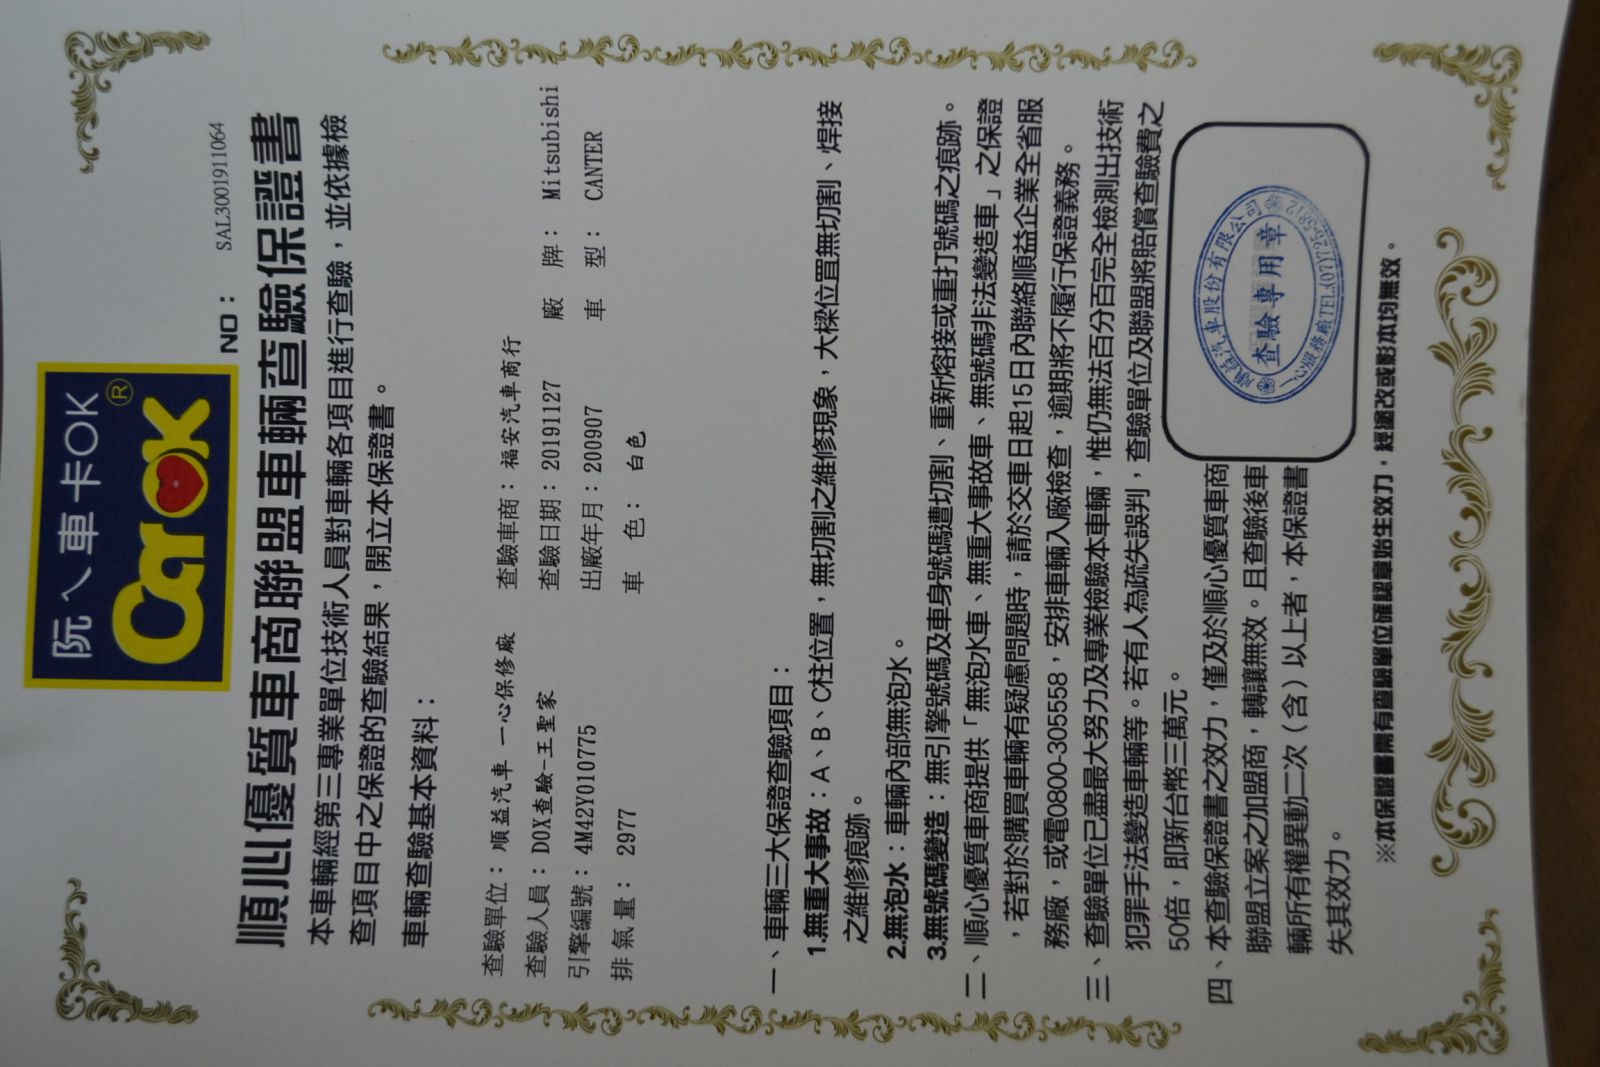 阮ㄟ車卡OK
CarOK®
NO：SAL30019111064
順心優質車商聯盟車輛查驗保證書
本車輛經第三專業單位技術人員對車輛各項目進行查驗，並依據檢
查項目中之保證的查驗結果，開立本保證書。
車輛查驗基本資料：
查驗單位：順益汽車一心保修廠 查驗車商：福安汽車商行
查驗人員：DOX查驗-王聖家 查驗日期：20191127 廠 牌：Mitsubishi
引擎編號：4M42Y010775 出廠年月：200907 車 型：CANTER
排氣量：2977 車 色：白色
一、車輛三大保證查驗項目：
1.無重大事故：A、B、C柱位置，無切割之維修現象，大樑位置無切割、焊接
之維修痕跡。
2.無泡水：車輛內部無泡水。
3.無號碼變造：無引擎號碼及車身號碼遭切割、重新熔接或重打號碼之痕跡。
二、順心優質車商提供「無泡水車、無重大事故車、無號碼非法變造車」之保證
，若對於購買車輛有疑慮問題時，請於交車日起15日內聯絡順益企業全省服
務廠，或電0800-305558，安排車輛入廠檢查，逾期將不履行保證義務。
三、查驗單位已盡最大努力及專業檢驗本車輛，惟仍無法百分百完全檢測出技術
犯罪手法變造車輛等。若有人為疏失誤判，查驗單位及聯盟將賠償查驗費之
50倍，即新台幣三萬元。
四、本查驗保證書之效力，僅及於順心優質車商
聯盟立案之加盟商，轉讓無效。且查驗後車
輛所有權異動二次（含）以上者，本保證書
失其效力。
順益汽車股份有限公司
查驗專用章
一心服務廠TEL:(07)725-5812
※本保證書需有查驗單位確認章始生效力，經塗改或影本均無效。